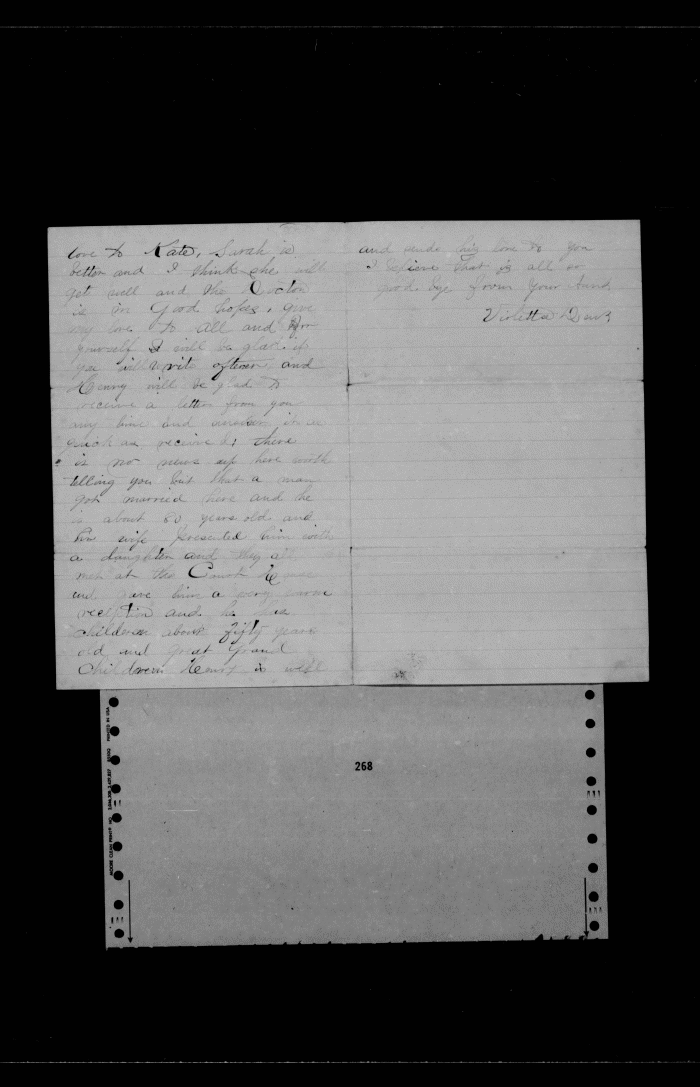 love to Kate, Sarah is
better and I think she will
get well and the Doctor
is in Good hopes, give
my love to all and
yourself I will be glad if
you will write oftener and
Henry will be glad to
receive a letter from you
any time and answer it as
quick as received, there
is no news up here worth
telling you but that a man
got married here and he
is about 80 years old and
his wife presented him with
a daughter and they all
met at the Court House
and gave him a very warm
reception and he has
children about fifty years
old and great Grand
Childrern Henry is well
and sends his love to you
I believe that is all so
good by from your Aunt
Violetta
268
PRINTED IN USA